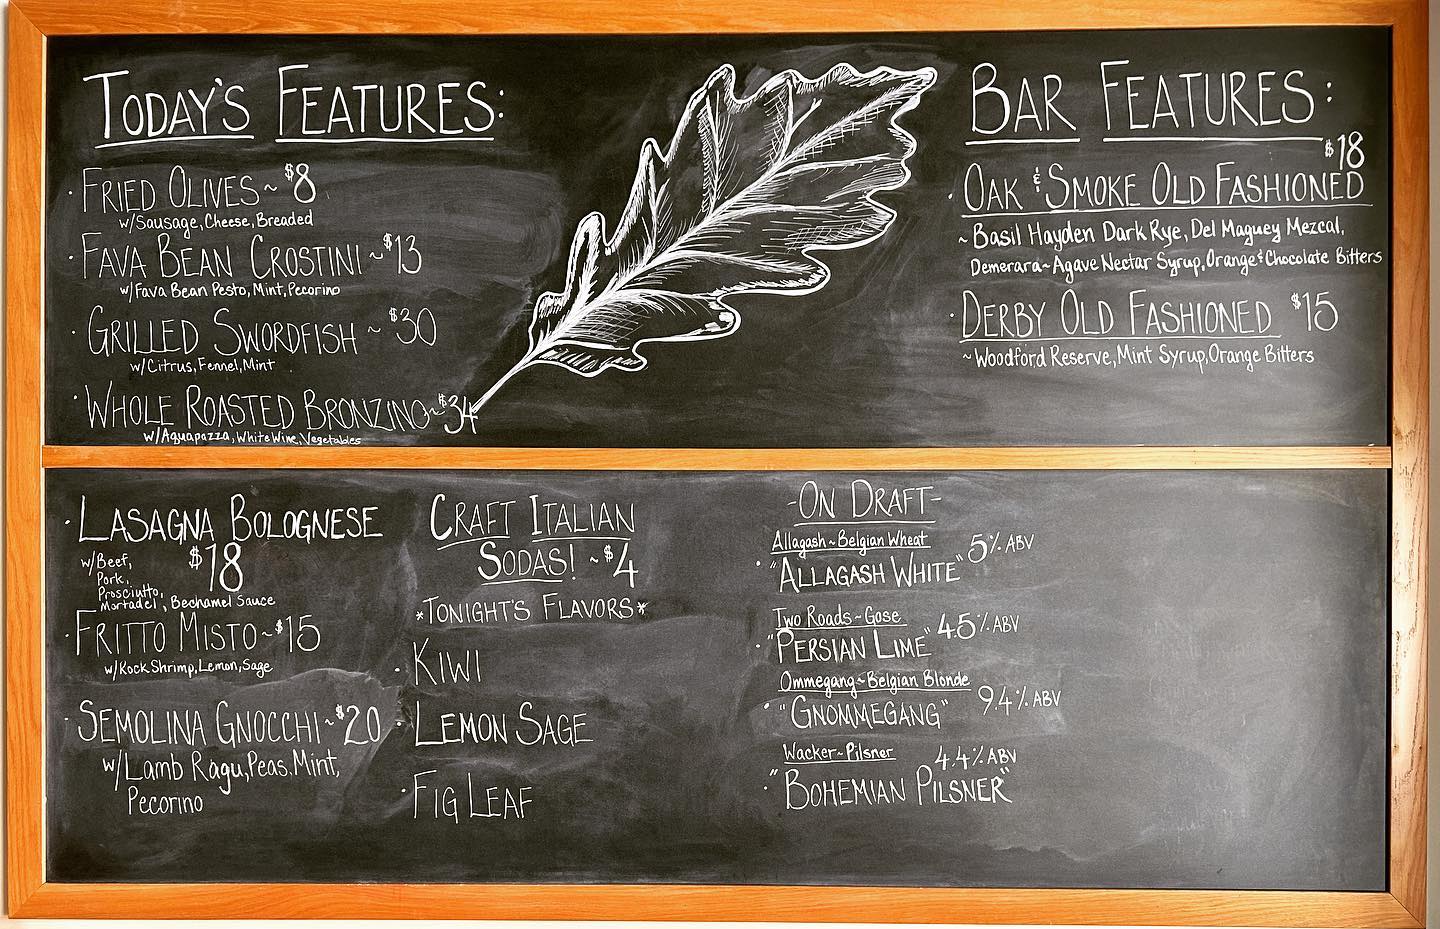 TODAY'S FEATURES:
· FRIED OLIVES ~ $8
w/Sausage, Cheese, Breaded
· FAVA BEAN CROSTINI ~ $13
w/Fava Bean Pesto, Mint, Pecorino
· GRILLED SWORDFISH ~ $30
w/Citrus, Fennel, Mint
· WHOLE ROASTED BRONZINO ~ $34
w/Aquapazza, White Wine, Vegetables
BAR FEATURES:
$18
· OAK & SMOKE OLD FASHIONED
~ Basil Hayden Dark Rye, Del Maguey Mezcal,
Demerara ~ Agave Nectar Syrup, Orange & Chocolate Bitters
· DERBY OLD FASHIONED $15
~ Woodford Reserve, Mint Syrup, Orange Bitters
· LASAGNA BOLOGNESE
$18
w/Beef,
Pork,
Prosciutto,
Mortadel, Bechamel Sauce
· FRITTO MISTO ~ $15
w/Rock Shrimp, Lemon, Sage
· SEMOLINA GNOCCHI ~ $20
w/Lamb Ragu, Peas, Mint,
Pecorino
CRAFT ITALIAN
SODAS! ~ $4
*TONIGHT'S FLAVORS*
· KIWI
· LEMON SAGE
· FIG LEAF
-ON DRAFT-
Allagash ~ Belgian Wheat
· "ALLAGASH WHITE" 5% ABV
Two Roads ~ Gose
· "PERSIAN LIME" 4.5% ABV
Ommegang ~ Belgian Blonde
· "GNOMMEGANG" 9.4% ABV
Wacker ~ Pilsner 4.4% ABV
· "BOHEMIAN PILSNER"